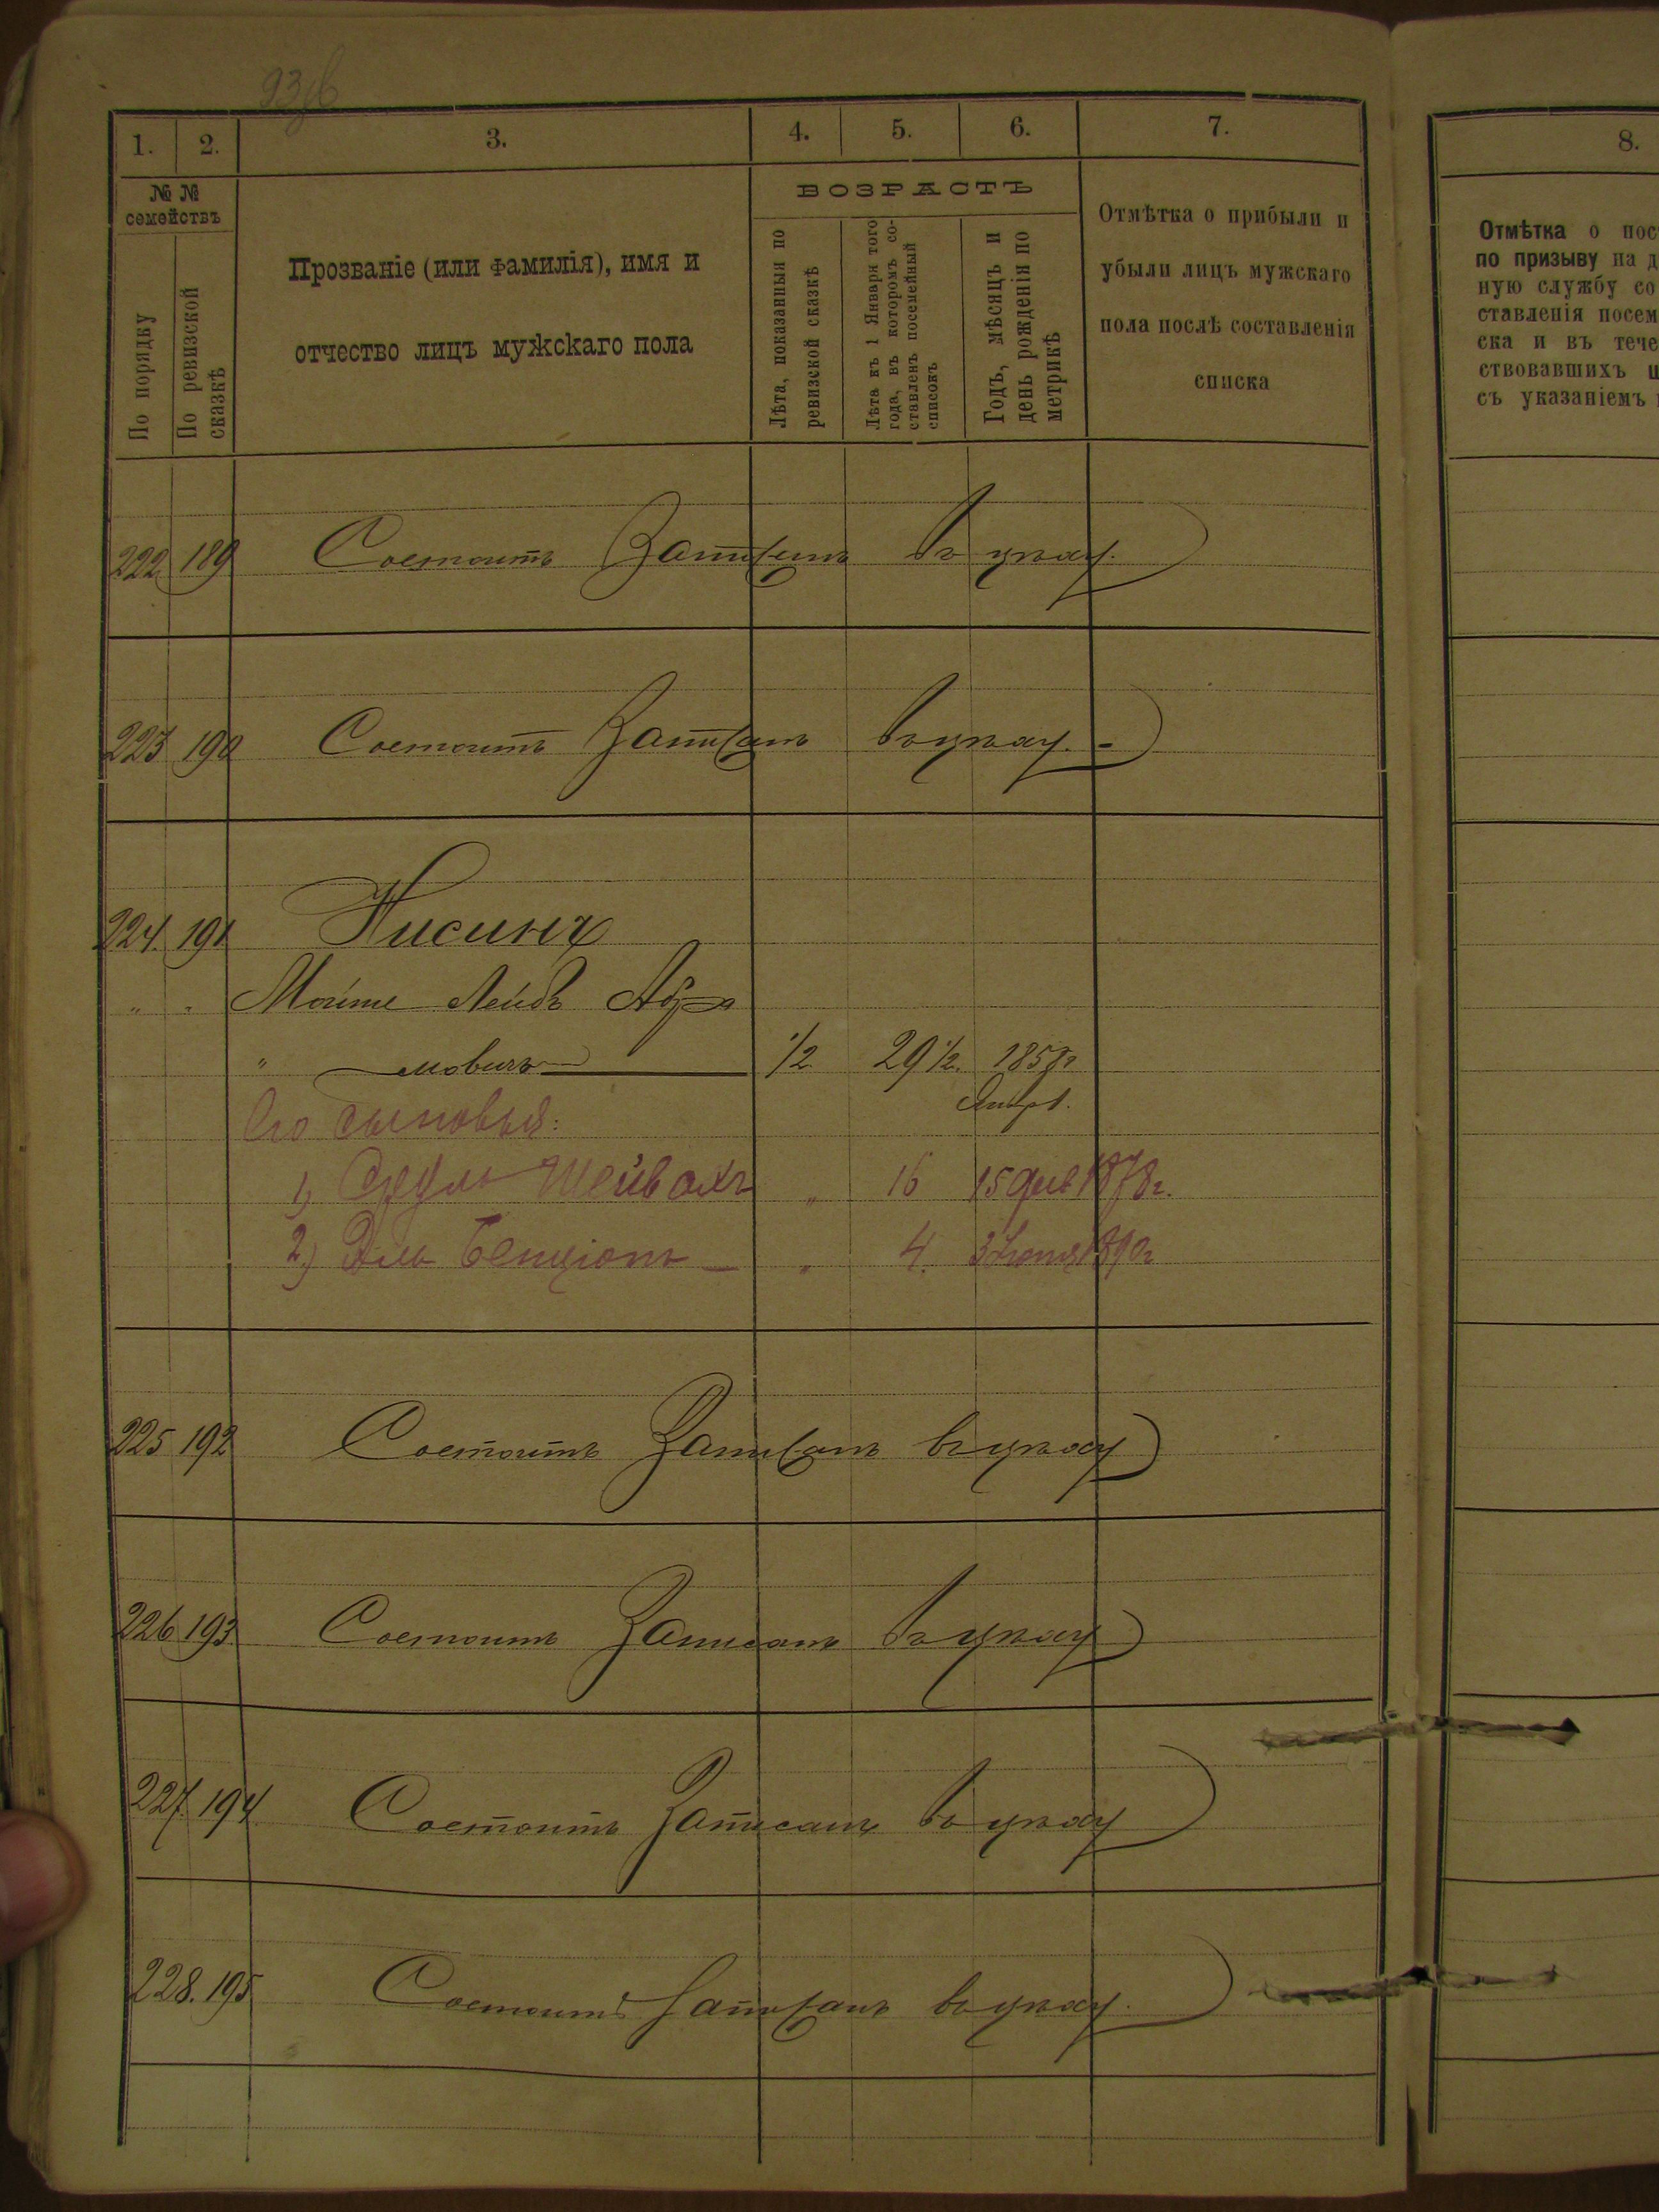 93об
1. 2. 3. 4. 5. 6. 7.
№ №
семействъ
По порядку
По ревизской сказкѣ
Прозваніе (или фамилія), имя и
отчество лицъ мужскаго пола
ВОЗРАСТЪ
Лѣта, показанныя по
ревизской сказкѣ
Лѣта къ 1 Января того
года, въ которомъ со-
ставленъ посемейный
списокъ
Годъ, мѣсяцъ и
день рожденія по
метрикѣ
Отмѣтка о прибыли и
убыли лицъ мужскаго
пола послѣ составленія
списка
222 189 Состоитъ Записанъ въ
223 190 Состоитъ Записанъ
224. 191 Нисинъ
" " Лейбъ Абра
" мовичъ 1/2. 29 1/2. 1858г
Январ 1.
Его сыновья:
1) 16 15 1878г.
2) Бенціонъ — " 4. 1890г
225 192 Состоитъ Записанъ
226 193 Состоитъ Записанъ
227. 194. Состоитъ Записанъ
228. 195 Состоитъ Записанъ
8.
Отмѣтка о пос
по призыву на д
ную службу со
ставленія посем
ска и въ тече
ствовавшихъ
съ указаніемъ